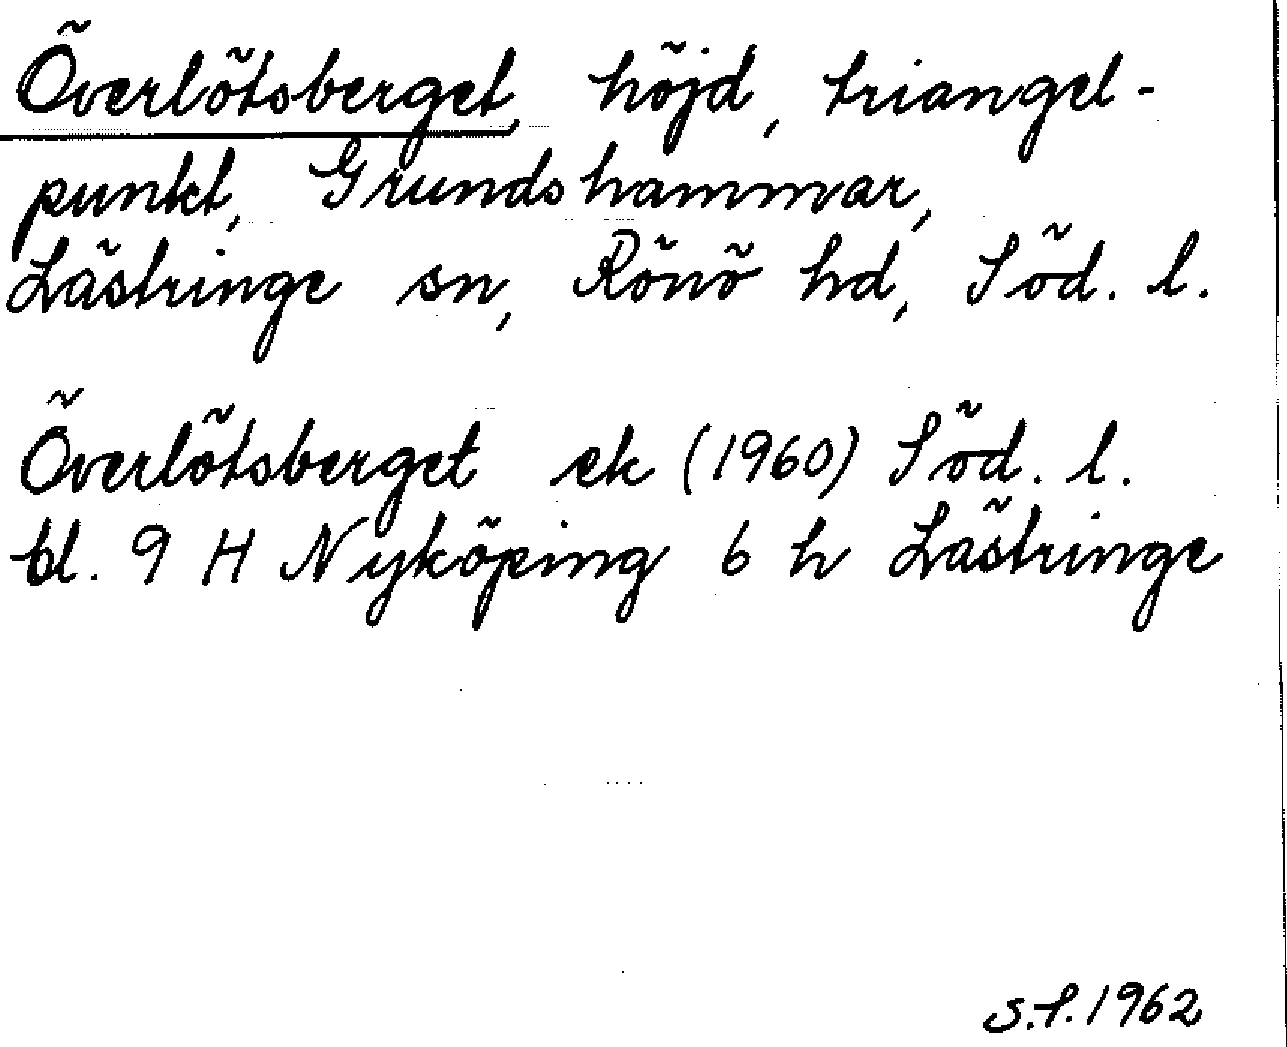 Överlötsberget, höjd, triangel-
punkt, Grundshammar,
Lästringe sn, Rönö hd, Söd. l.
Överlötsberget ek (1960) Söd. l.
bl. 9 H Nyköping 6 h Lästringe
S.S. 1962